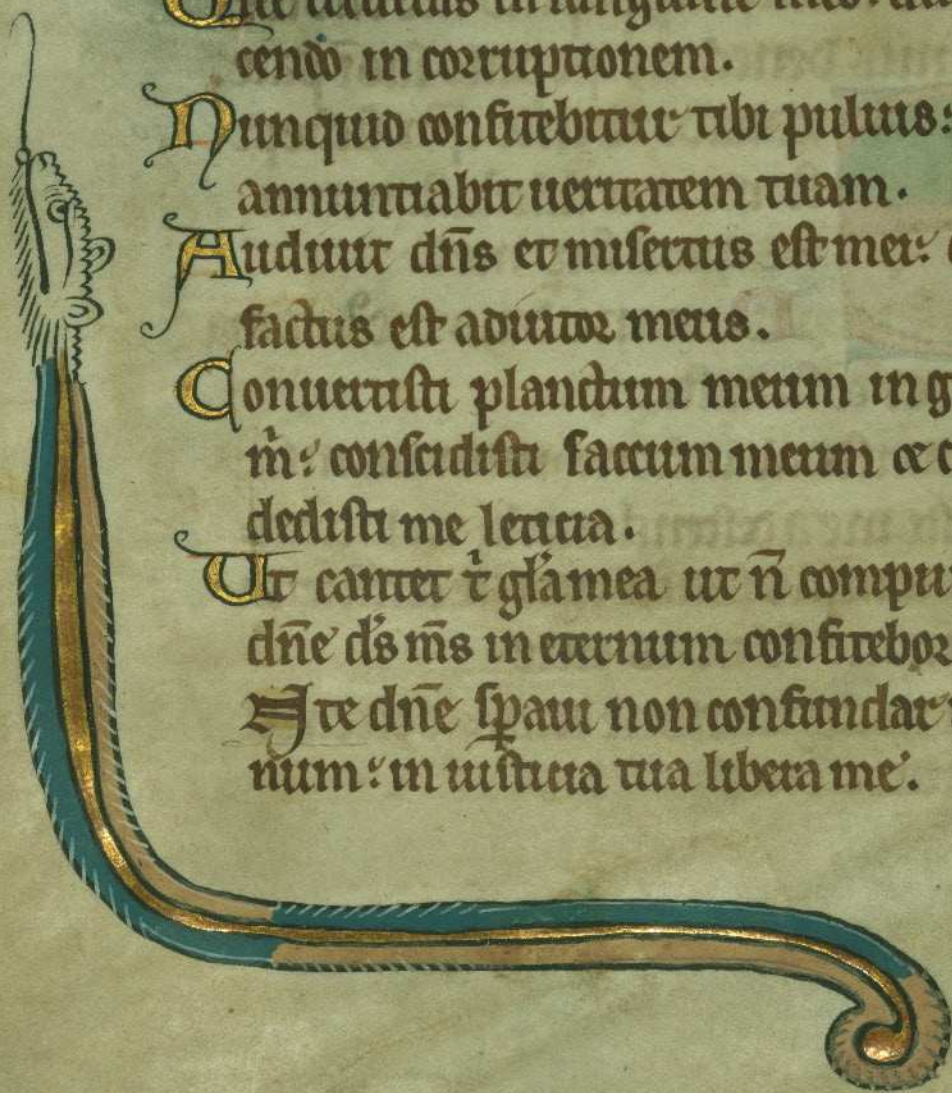 Que utilitas in sanguine meo: dum
cendo in corruptionem.
Nunquid confitebitur tibi puluis:
annuntiabit ueritatem tuam.
Audiuit dn̄s et misertus est mei:
factus est adiutor meus.
Conuertisti planctum meum in g
m̄: conscidisti saccum meum et c
dedisti me leticia.
Ut cantet t̄ gl̄a mea ut n̄ compu
dn̄e ds̄ m̄s in eternum confitebor
In te dn̄e sꝑaui non confundar
num: in iusticia tua libera me.